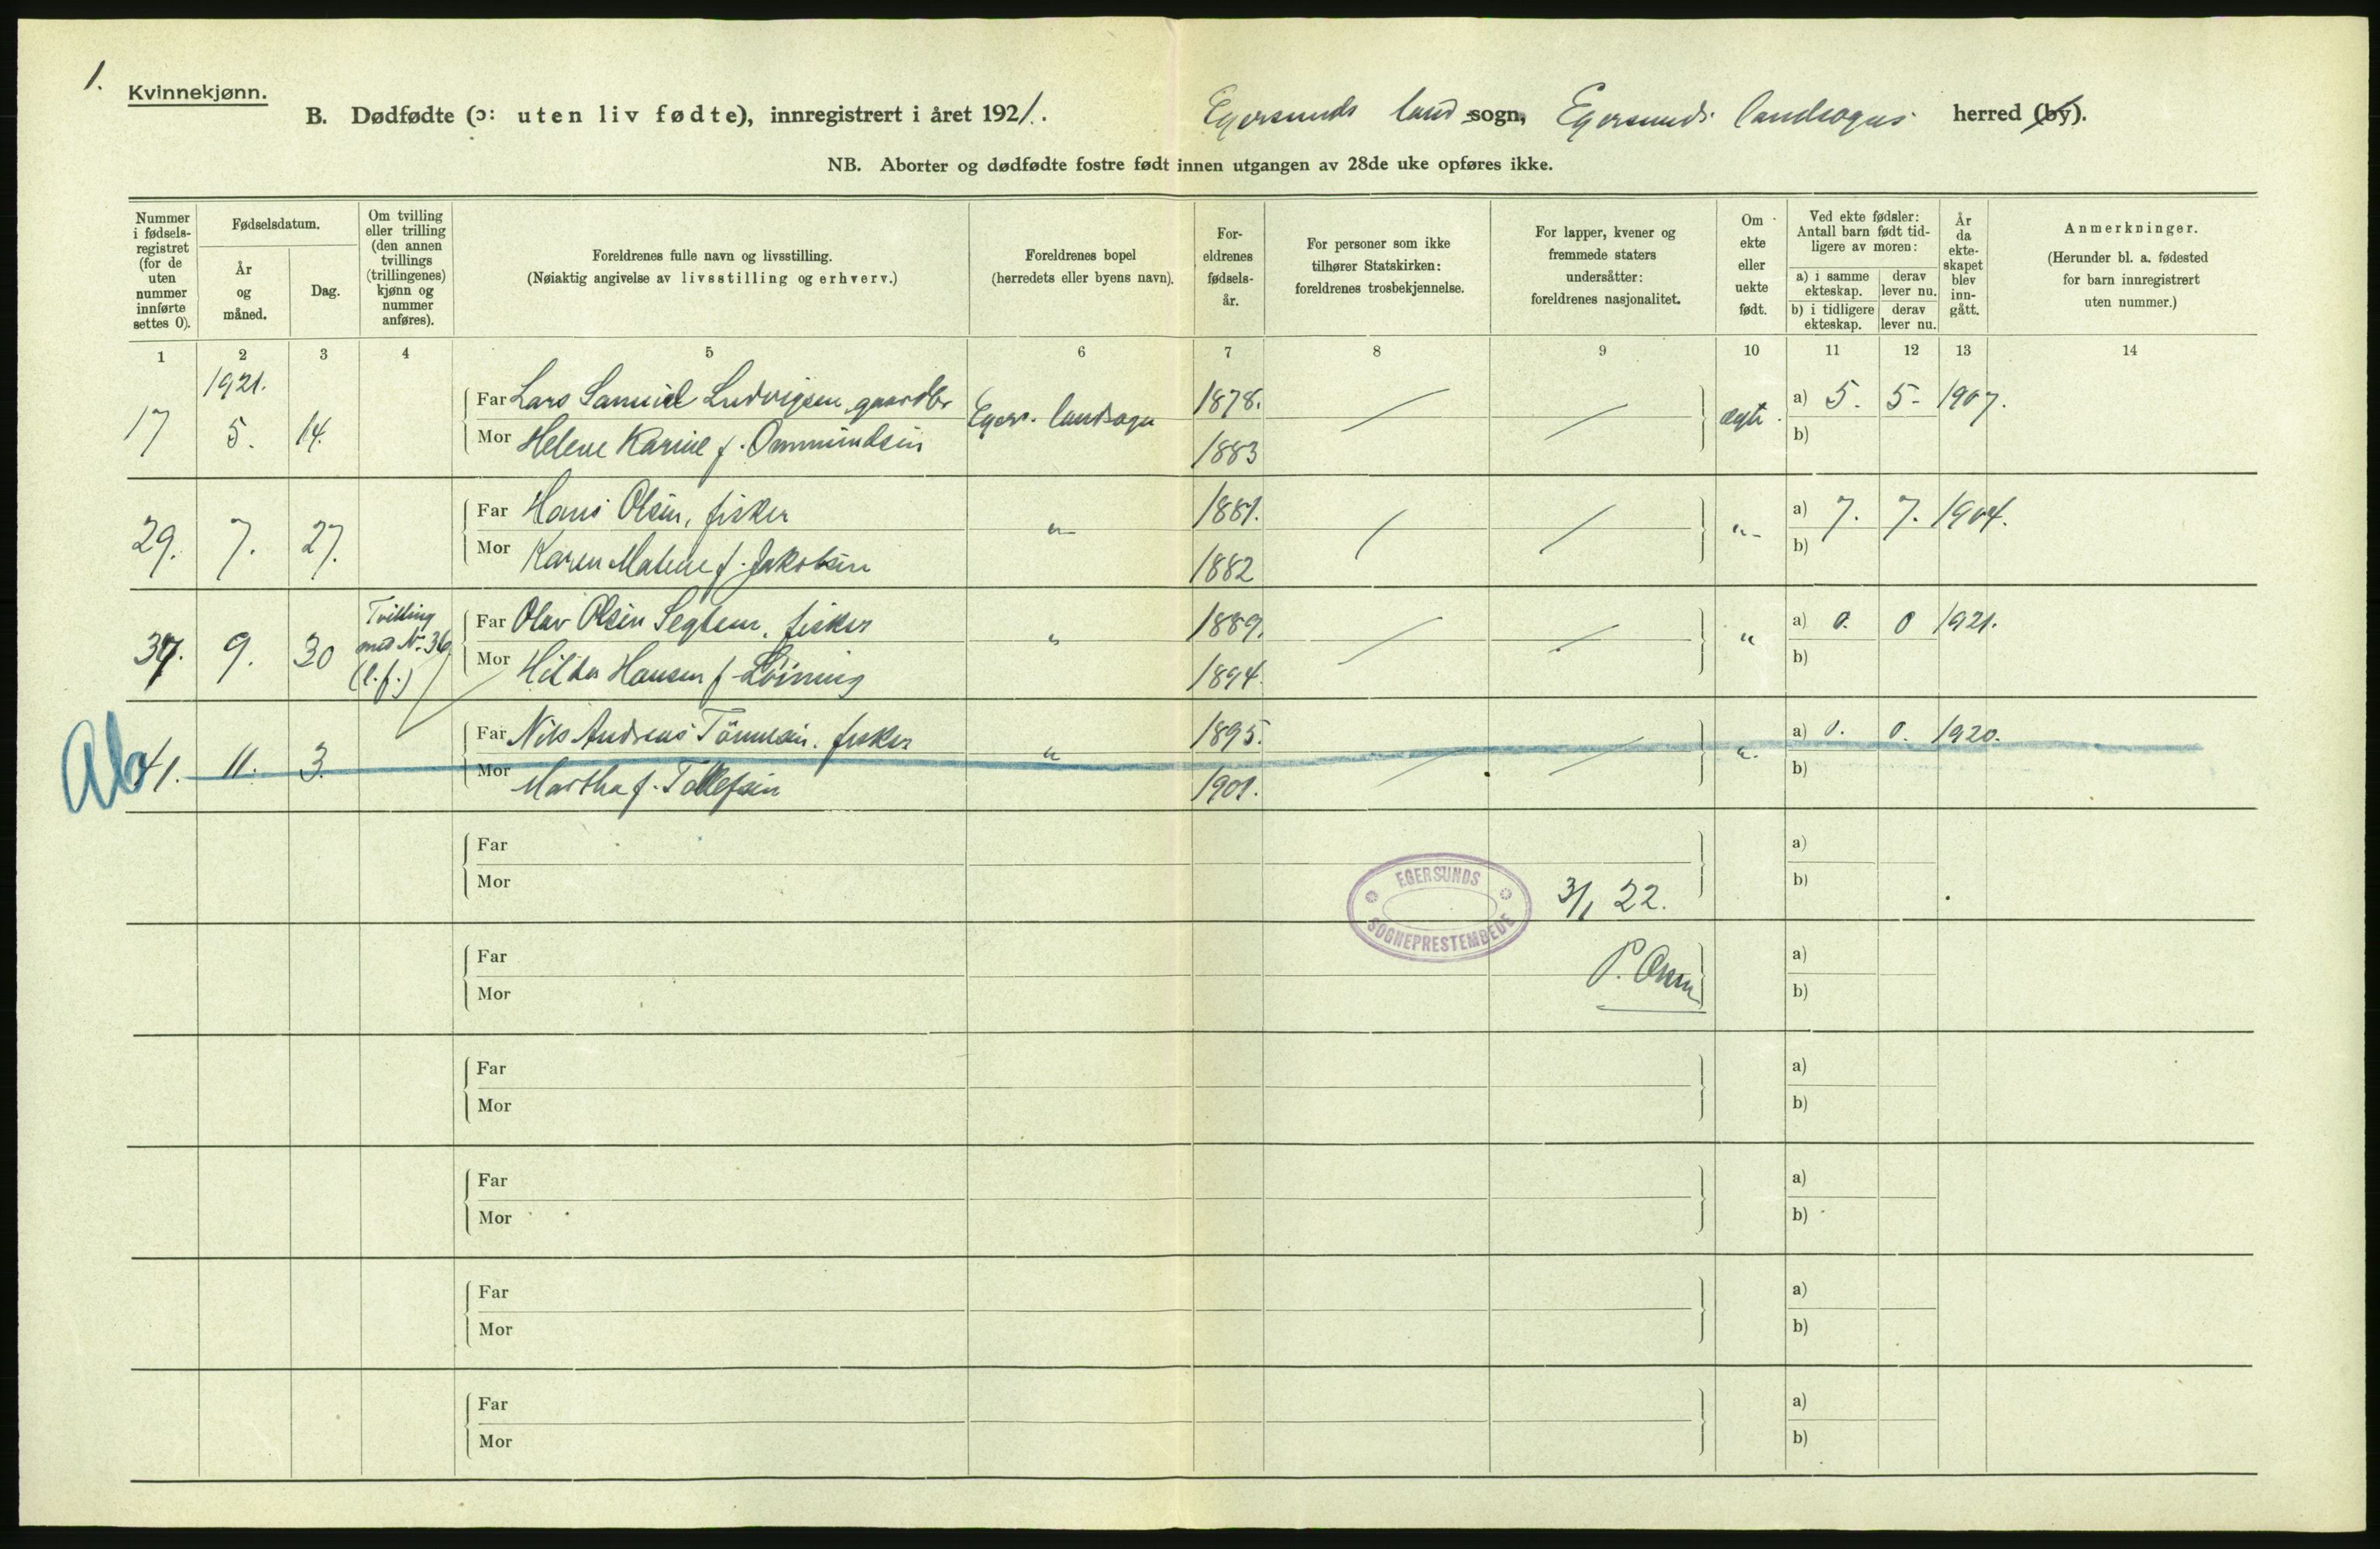 1.
Kvinnekjønn.
B. Dødfødte (ɔ: uten liv fødte), innregistrert i året 1921. Egersunds land sogn, Egersunds landsogns herred (by).
NB. Aborter og dødfødte fostre født innen utgangen av 28de uke opføres ikke.
Nummer i fødsels-registret (for de uten nummer innførte settes 0).
Fødselsdatum.
År og måned.
Dag.
Om tvilling eller trilling (den annen tvillings (trillingenes) kjønn og nummer anføres).
Foreldrenes fulle navn og livsstilling.
(Nøiaktig angivelse av livsstilling og erhverv.)
Foreldrenes bopel
(herredets eller byens navn).
For-eldrenes fødsels-år.
For personer som ikke tilhører Statskirken: foreldrenes trosbekjennelse.
For lapper, kvener og fremmede staters undersåtter: foreldrenes nasjonalitet.
Om ekte eller uekte født.
Ved ekte fødsler: Antall barn født tid-ligere av moren:
a) i samme ekteskap.
derav lever nu.
b) i tidligere ekteskap.
derav lever nu.
År da ekte-skapet blev inn-gått.
Anmerkninger.
(Herunder bl. a. fødested for barn innregistrert uten nummer.)
1 2 3 4 5 6 7 8 9 10 11 12 13 14
1921.
17 5. 14. Far Lars Samuel Ludvigsen gaardbr Egers. landsogn 1878. ægte a) 5. 5- 1907.
Mor Helene Karine f. Ommundsen 1883 b)
29. 7. 27. Far Hans Olsen, fisker " 1881. " a) 7. 7. 1904.
Mor Karen Malene f. Jakobsen 1882 b)
37. 9. 30 Tvilling med N. 36 (l.f.) Far Olav Olsen Segtem, fisker " 1889. " a) 0. 0 1921.
Mor Hilda Hansen f. 1894. b)
Ab
41. 11. 3. Far Nils Andreas Tönnesen. fisker " 1895. " a) 0. 0. 1920.
Mor Martha f. Tollefsen 1901. b)
Far a)
Mor b)
EGERSUNDS SOGNEPRESTEMBEDE
3/1 22.
Far a)
Mor b)
P.
Far a)
Mor b)
Far a)
Mor b)
Far a)
Mor b)
Far a)
Mor b)